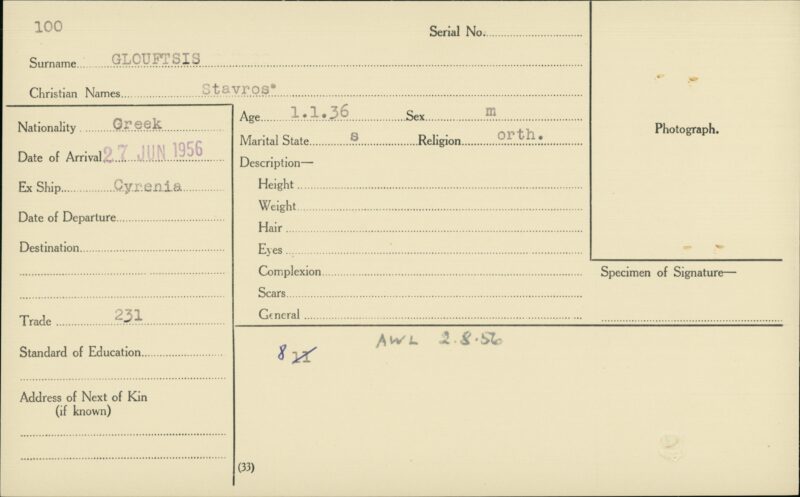 100
Serial No.
Surname GLOUFTSIS
Christian Names Stavros*
Nationality Greek
Date of Arrival 27 JUN 1956
Ex Ship Cyrenia
Date of Departure
Destination
Trade 231
Standard of Education
Address of Next of Kin
(if known)
Age 1.1.36 Sex m
Marital State s Religion orth.
Description—
Height
Weight
Hair
Eyes
Complexion
Scars
General
Photograph.
Specimen of Signature—
AWL 2.8.56
8
(33)